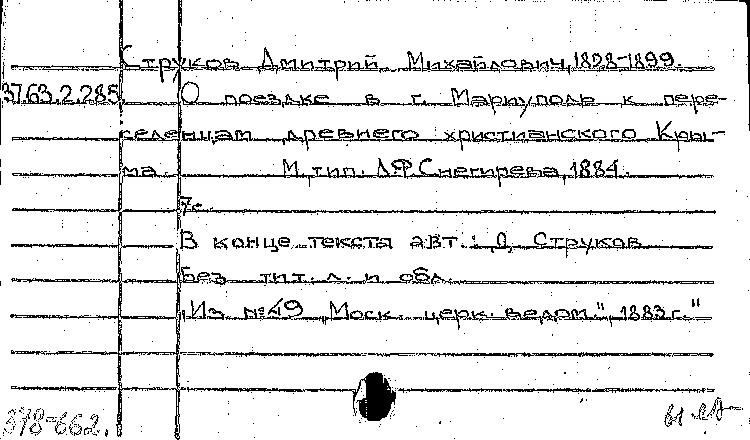 Струков Дмитрий Михайлович, 1828-1899.
37.63.2.285. О поездке в г. Мариуполь к пере-
селенцам древнего христианского Кры-
ма. М., тип. Л.Ф. Снегирева, 1884.
7с.
В конце текста авт.: Д. Струков
Без тит. л. и обл.
„Из № 49 „Моск. церк. ведом.", 1883 г."
378-662.